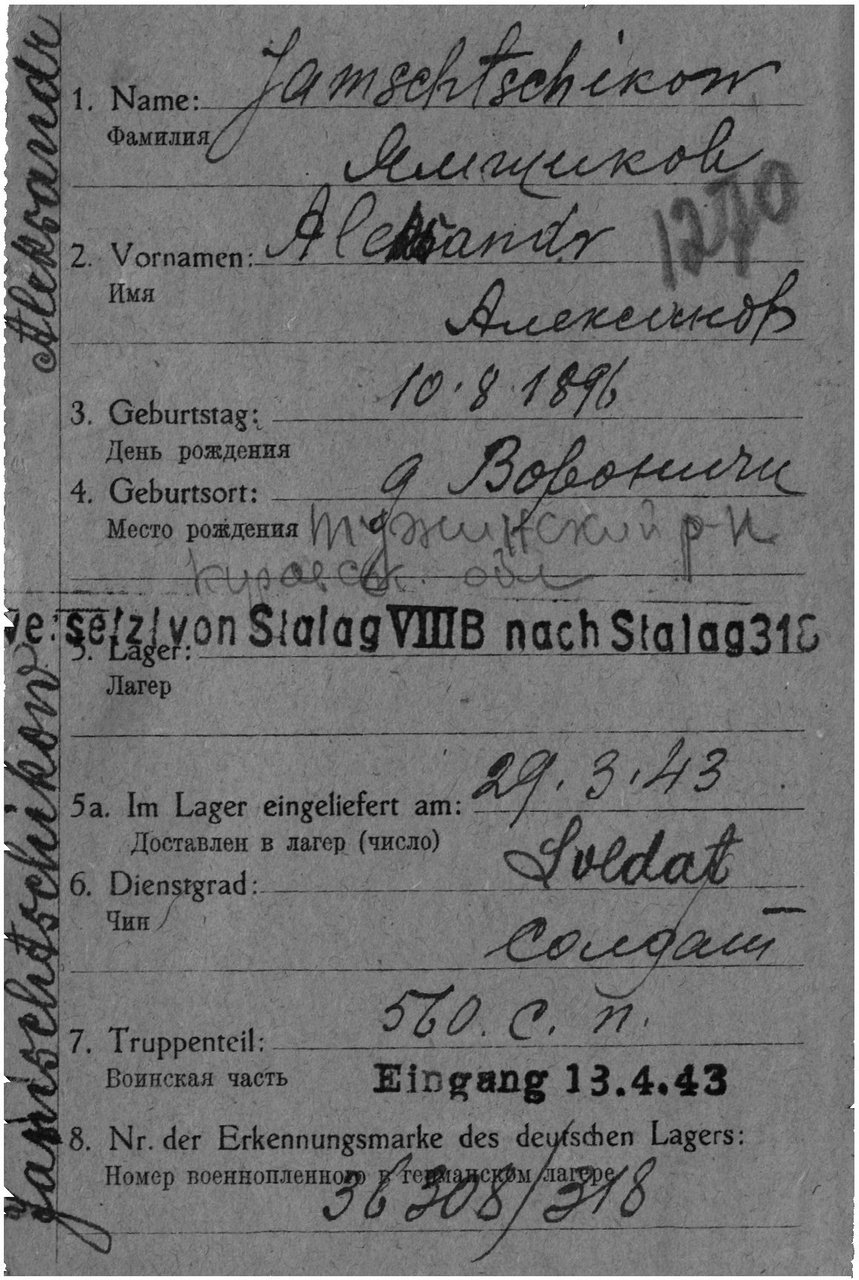 1. Name: Jamschtschikow
Фамилия
Ямщиков
1270
2. Vornamen: Aleksandr
Имя
Александр
3. Geburtstag: 10.8.1896
День рождения
4. Geburtsort: д Вороничи
Место рождения Тужинский р-н
обл
versetzt von Stalag VIII B nach Stalag 318
5. Lager:
Лагер
5a. Im Lager eingeliefert am: 29.3.43
Доставлен в лагер (число)
6. Dienstgrad: Soldat
Чин
Солдат
7. Truppenteil: 560. с. п.
Воинская часть
Eingang 13.4.43
8. Nr. der Erkennungsmarke des deutschen Lagers:
Номер военнопленного в германском лагере
36308/318
Jamschtschikow Aleksandr